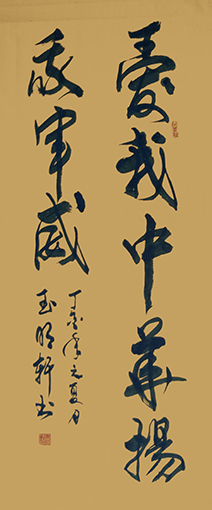 愛我中華揚
我軍威
丁亥年夏月
玉明軒書